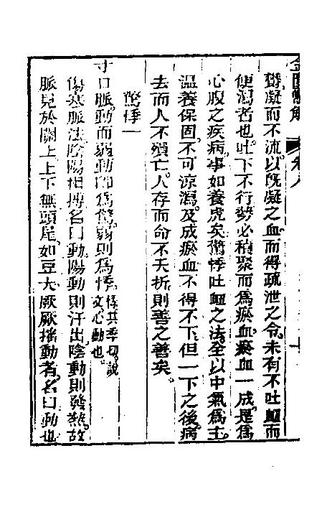 金匱懸解 卷八
鬱凝而不流以旣凝之血而得疏泄之令未有不吐衄而
便瀉者也吐下不行勢必積聚而爲瘀血瘀血一成是爲
心腹之疾病事如養虎矣驚悸吐衄之法全以中氣爲主
溫養保固不可涼瀉及成瘀血不得不下但一下之後病
去而人不殞亡人存而命不夭折則善之善矣
驚悸一
寸口脈動而弱動卽爲驚弱則爲悸悸其季切說文心動也
傷寒脈法陰陽相搏名曰動陽動則汗出陰動則發熱故
脈見於關上上下無頭尾如豆大厥厥搖動者名曰動也